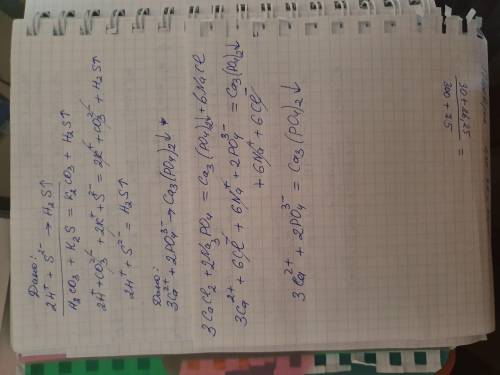 Дано:
2H⁺ + S²⁻ → H₂S↑
H₂CO₃ + K₂S = K₂CO₃ + H₂S↑
2H⁺ + CO₃²⁻ + 2K⁺ + S²⁻ = 2K⁺ + CO₃²⁻ + H₂S↑
2H⁺ + S²⁻ = H₂S↑
Дано:
3Ca²⁺ + 2PO₄³⁻ → Ca₃(PO₄)₂↓
3CaCl₂ + 2Na₃PO₄ = Ca₃(PO₄)₂↓ + 6NaCl
3Ca²⁺ + 6Cl⁻ + 6Na⁺ + 2PO₄³⁻ = Ca₃(PO₄)₂↓
+ 6Na⁺ + 6Cl⁻
3Ca²⁺ + 2PO₄³⁻ = Ca₃(PO₄)₂↓